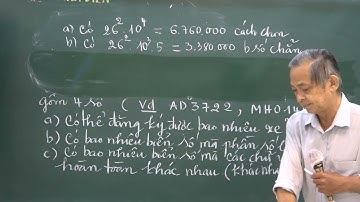 a) có 26² 10⁴ = 6.760.000 cách chọn
b) Có 26² 10³ 5 = 3.380.000 b số chẵn
gồm 4 số ( Vd AD 3722, MH0
a) Có thể đăng ký được bao nhiêu xe
b) Có bao nhiêu biển số mà phần số
c) Có bao nhiêu biển số mà các chữ
hoàn toàn khác nhau (khác